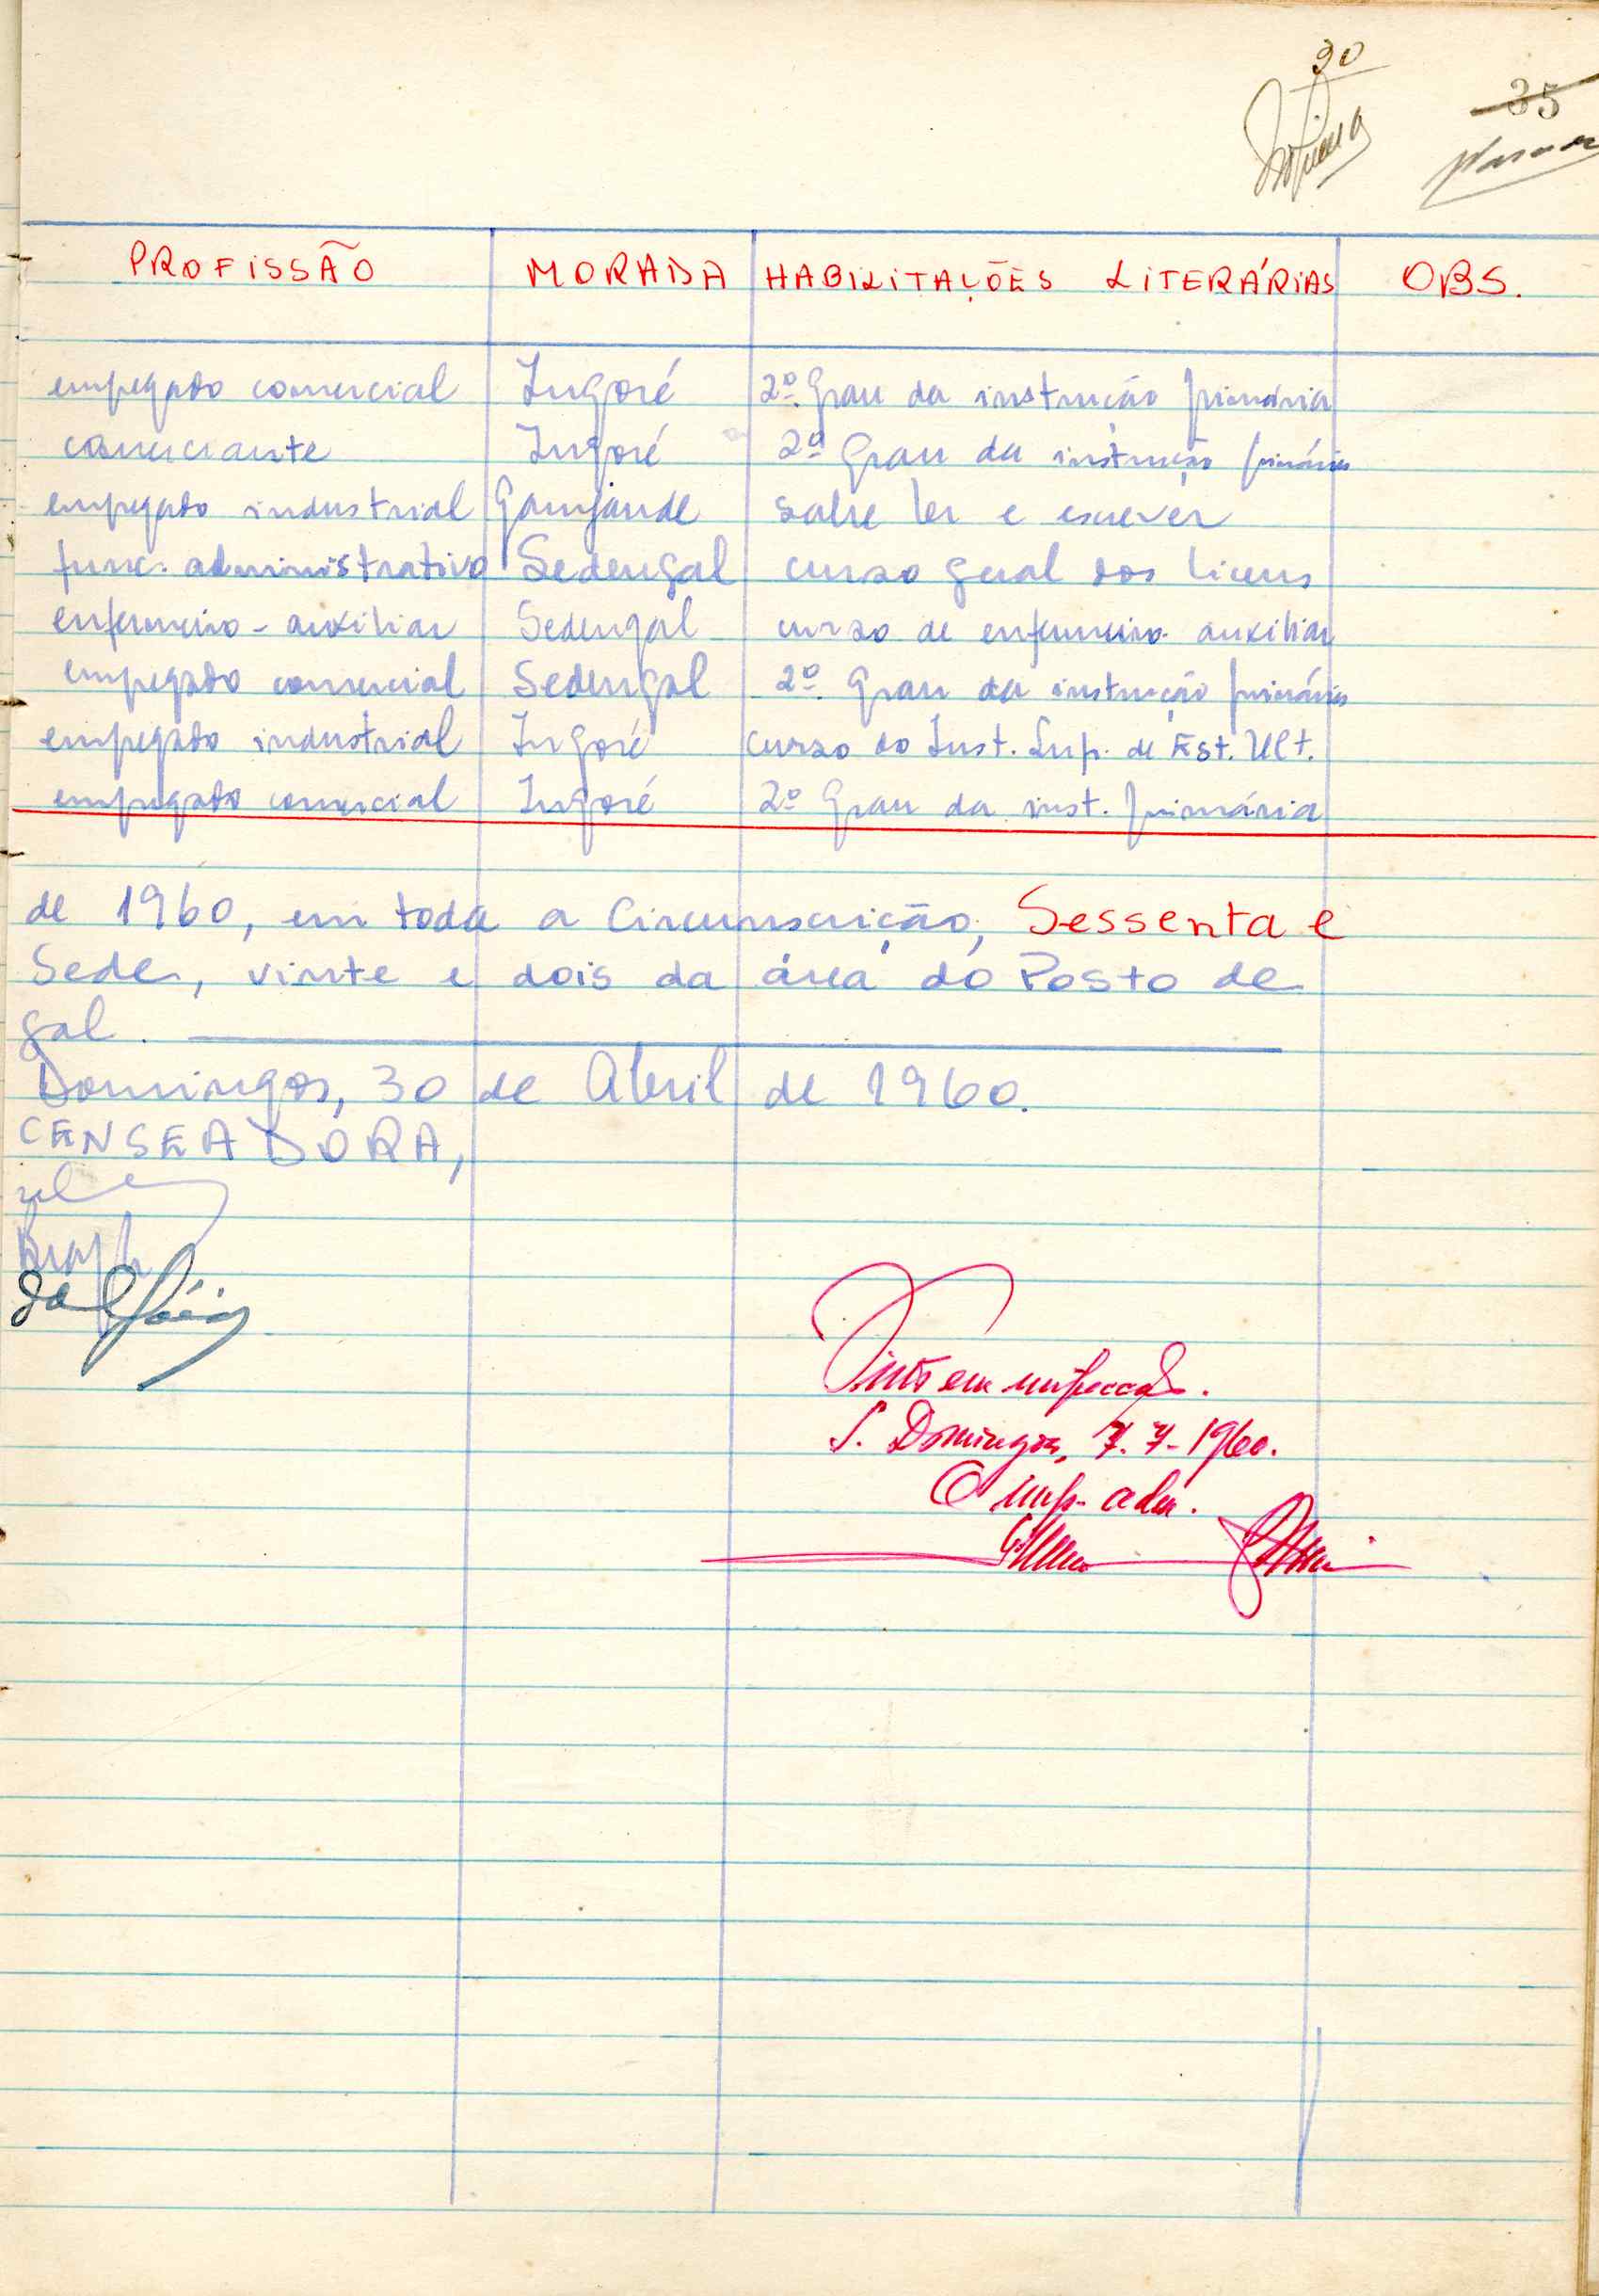 30
35
PROFISSÃO MORADA HABILITAÇÕES LITERÁRIAS OBS.
empregado comercial Ingoré 2º. Grau da instrução primária
comerciante Ingoré 2º Grau da instrução primária
empregado industrial Gamjande sabe ler e escrever
func. administrativo Sedengal curso geral dos liceus
enfermeiro-auxiliar Sedengal curso de enfermeiro-auxiliar
empregado comercial Sedengal 2º. Grau da instrução primária
empregado industrial Ingoré curso do Inst. Sup. de Est. Ult.
empregado comercial Ingoré 2º Grau da inst. primária
de 1960, em toda a Circunscrição, Sessenta e
Sede, vinte e dois da área do Posto de
gal.
Domingos, 30 de Abril de 1960.
CENSEADORA,
Visto em inspecção.
S. Domingos, 7.7-1960.
O insp. adm.